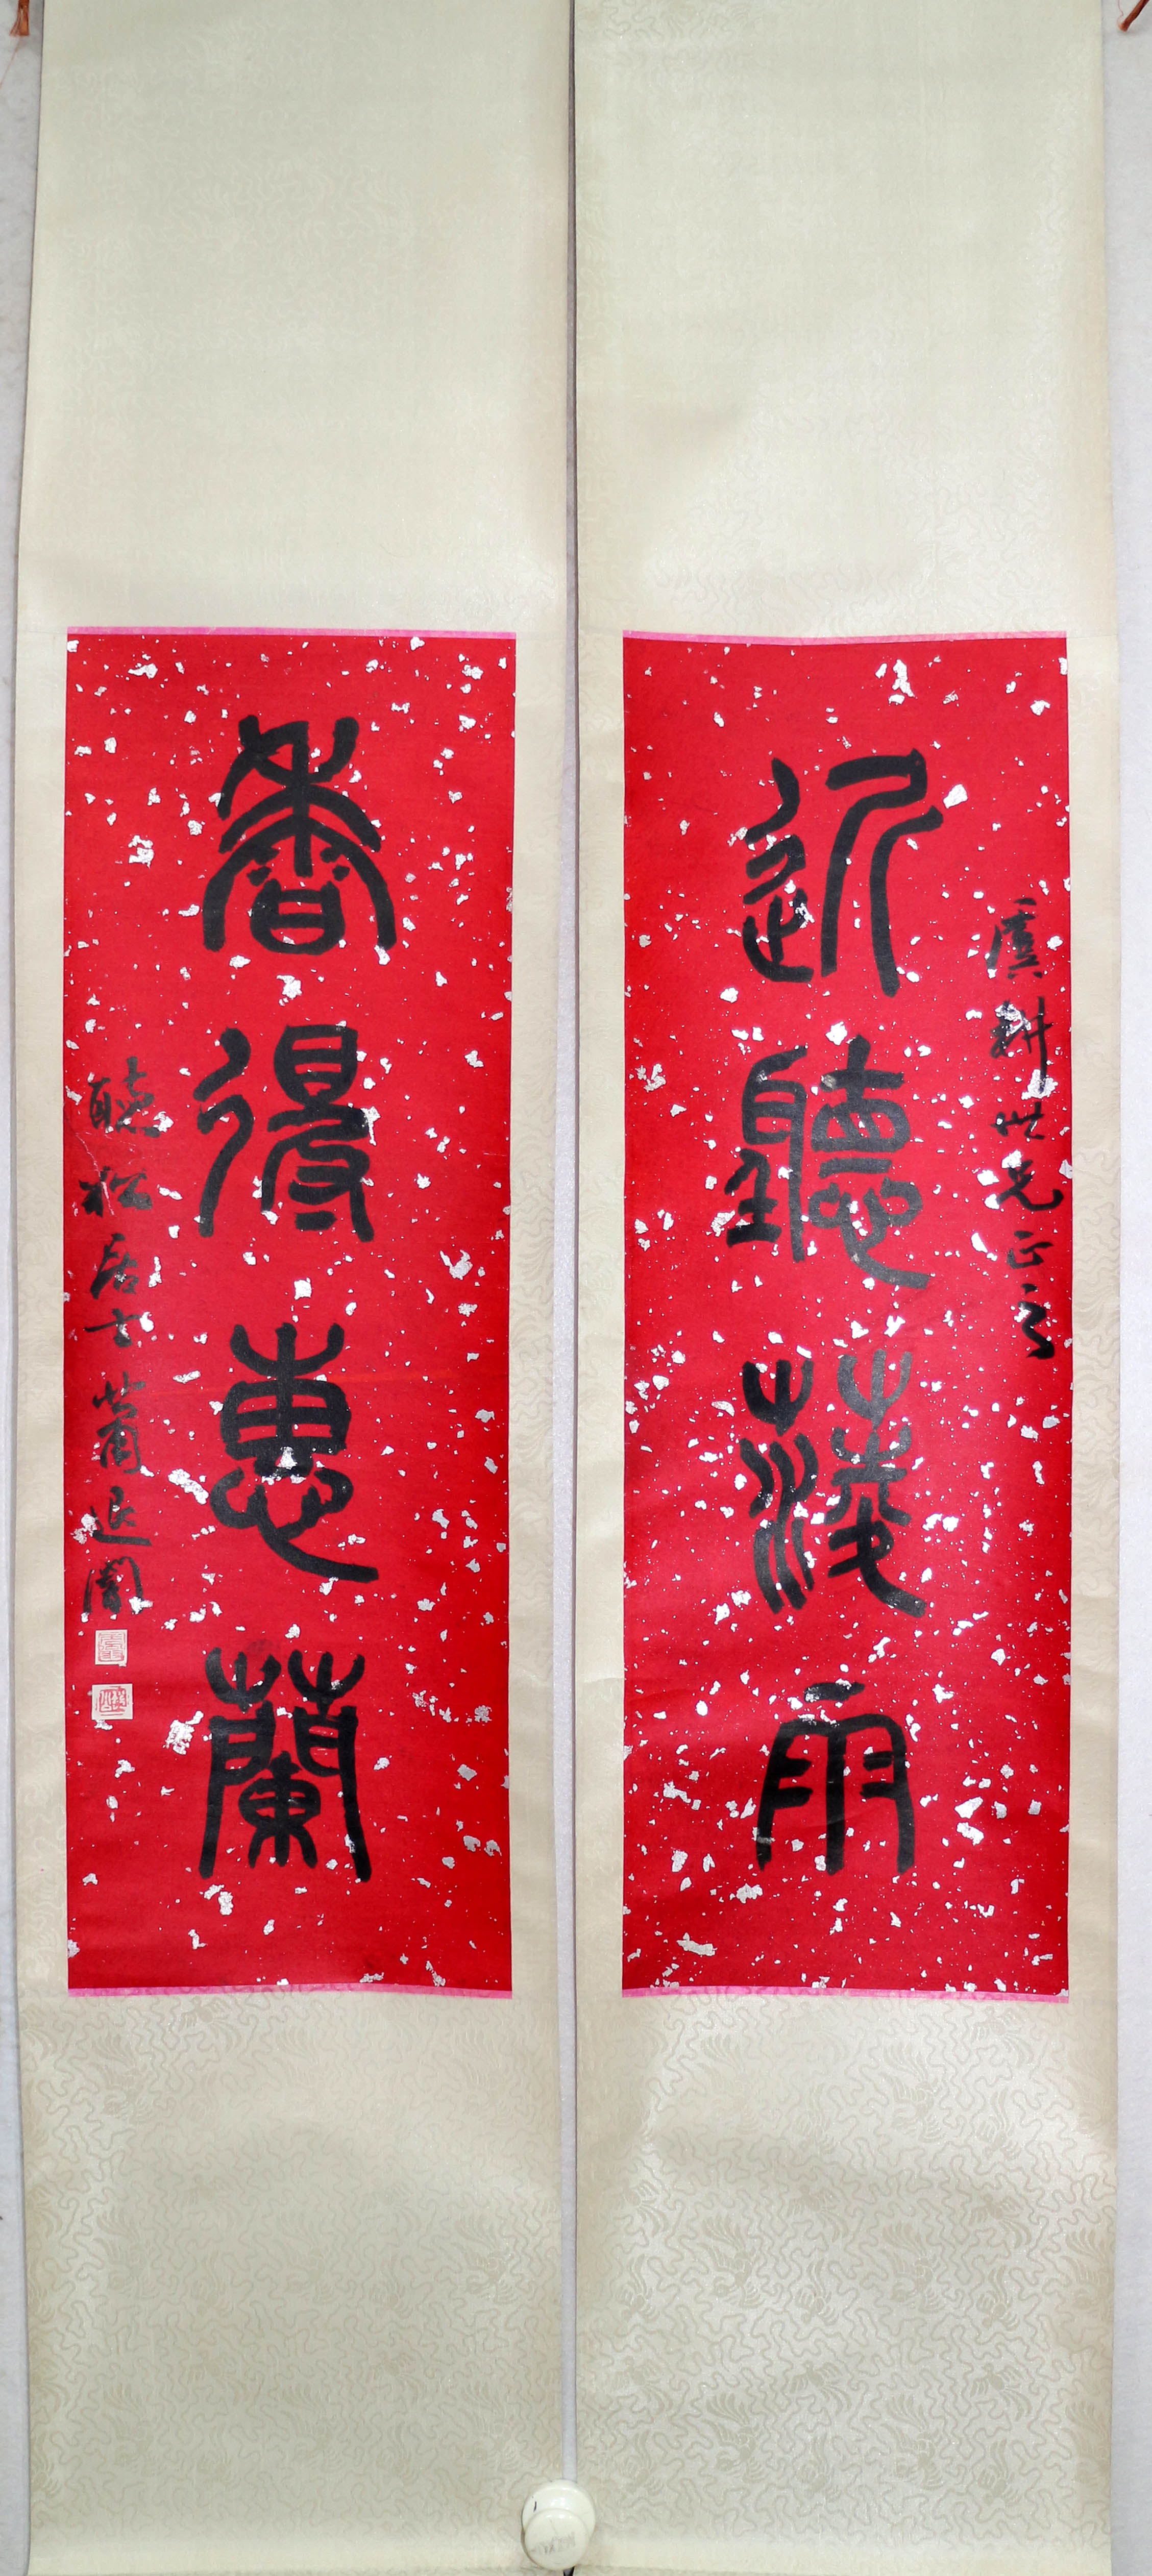 虞耕世兄正之
近聽蓤雨
香得惠蘭
聽松居士蕭退闇